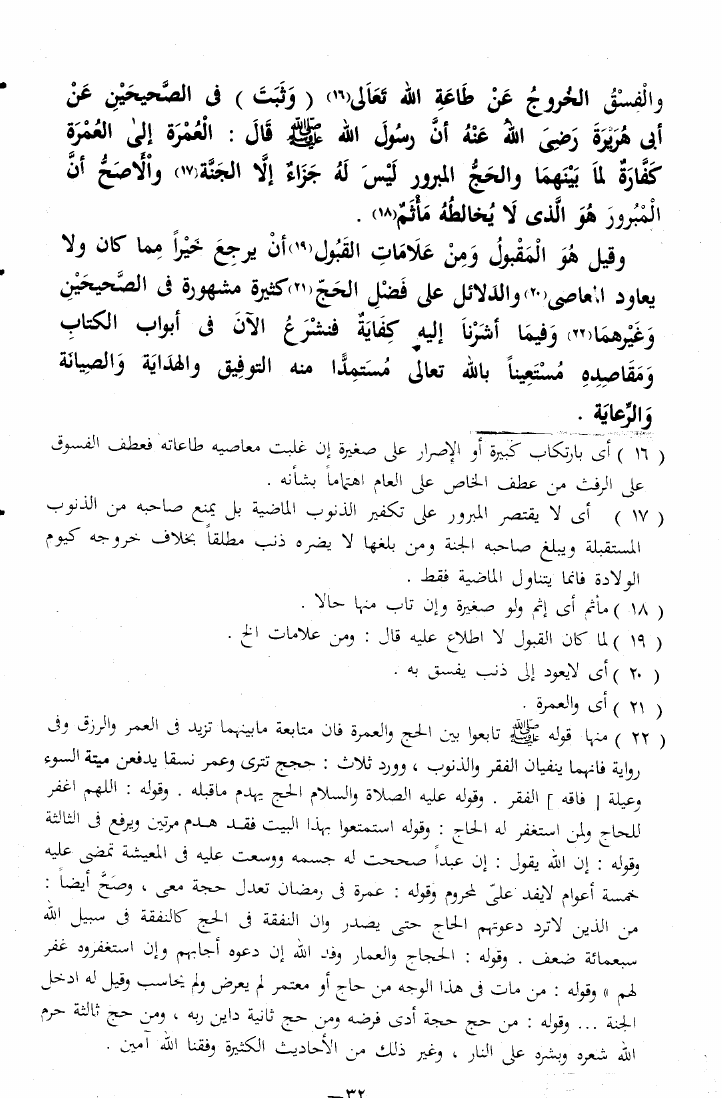 والْفِسْقُ الخُروجُ عَنْ طَاعَةِ الله تَعَالَى(١٦) ( وَثَبَتَ ) فى الصَّحيحَيْنِ عَنْ
أبى هُرَيْرَةَ رَضِىَ اللهُ عَنْهُ أنَّ رسُولَ الله ﷺ قَالَ : الْعُمْرَة إلىٰ العُمْرَة
كَفَّارَةٌ لمَا بَيْنَهمَا والحَجُّ المبرور لَيْسَ لَهُ جَزَاءٌ إلَّا الجَنَّة(١٧) والْأصَحُّ أنَّ
الْمْبُرورَ هُوَ الَّذى لَا يُخالطُهُ مَأْثَمٌ(١٨) .
وقيل هُوَ الْمَقْبُولُ وَمِنْ عَلَامَاتِ القَبُول(١٩)أنْ يرجعَ خَيْراً مِما كان ولا
يعاود المعاصى(٢٠)والدَلائل على فَضْلِ الحَجّ(٢١)كثيرة مشهورة فى الصَّحيحَيْن
وَغَيْرهمَا(٢٢) وَفيمَا أشَرْنَا إليه كِفَايَةٌ فنشْرَعُ الآنَ فى أبواب الكتابِ
وَمَقَاصِدِهِ مُسْتَعِيناً بالله تعالى مُستَمِدًّا منه التوفيق والهدَاية وَالصِيانَة
وَالرِّعاية .
( ١٦ ) أى بارتكاب كبيرة أو الإصرار على صغيرة إن غلبت معاصيه طاعاته فعطف الفسوق
على الرفث من عطف الخاص على العام اهتماماً بشأنه .
( ١٧ ) أى لا يقتصر المبرور على تكفير الذنوب الماضية بل يمنع صاحبه من الذنوب
المستقبلة ويبلغ صاحبه الجنة ومن بلغها لا يضره ذنب مطلقاً بخلاف خروجه كيوم
الولادة فانما يتناول الماضية فقط .
( ١٨ ) مأثم أى إثم ولو صغيرة وإن تاب منها حالا .
( ١٩ ) لما كان القبول لا اطلاع عليه قال : ومن علامات الخ .
( ٢٠ ) أى لايعود إلى ذنب يفسق به .
( ٢١ ) أى والعمرة .
( ٢٢ ) منها قوله ﷺ تابعوا بين الحج والعمرة فان متابعة مابينهما تزيد فى العمر والرزق وفى
رواية فانهما ينفيان الفقر والذنوب ، وورد ثلاث : حجج تترى وعمر نسقا يدفعن ميتة السوء
وعيلة [ فاقه ] الفقر . وقوله عليه الصلاة والسلام الحج يهدم ماقبله . وقوله : اللهم اغفر
للحاج ولمن استغفر له الحاج : وقوله استمتعوا بهذا البيت فقـد هـدم مرتين ويرفع فى الثالثة
وقوله : إن الله يقول : إن عبداً صححت له جسمه ووسعت عليه فى المعيشة تمضى عليه
خمسة أعوام لايفد علىّ لمحروم وقوله : عمرة فى رمضان تعدل حجة معى ، وصَحَّ أيضاً :
من الذين لاترد دعوتهم الحاج حتى يصدر وان النفقة فى الحج كالنفقة فى سبيل الله
سبعمائة ضعف . وقوله : الحجاج والعمار وفد الله إن دعوه أجابهم وإن استغفروه غفر
لهم » وقوله : من مات فى هذا الوجه من حاج أو معتمر لم يعرض ولم يحاسب وقيل له ادخل
الجنة ... وقوله : من حج حجة أدى فرضه ومن حج ثانية داين ربه ، ومن حج ثالثة حرم
الله شعره وبشره على النار ، وغير ذلك من الأحاديث الكثيرة وفقنا الله آمين .
٣٢